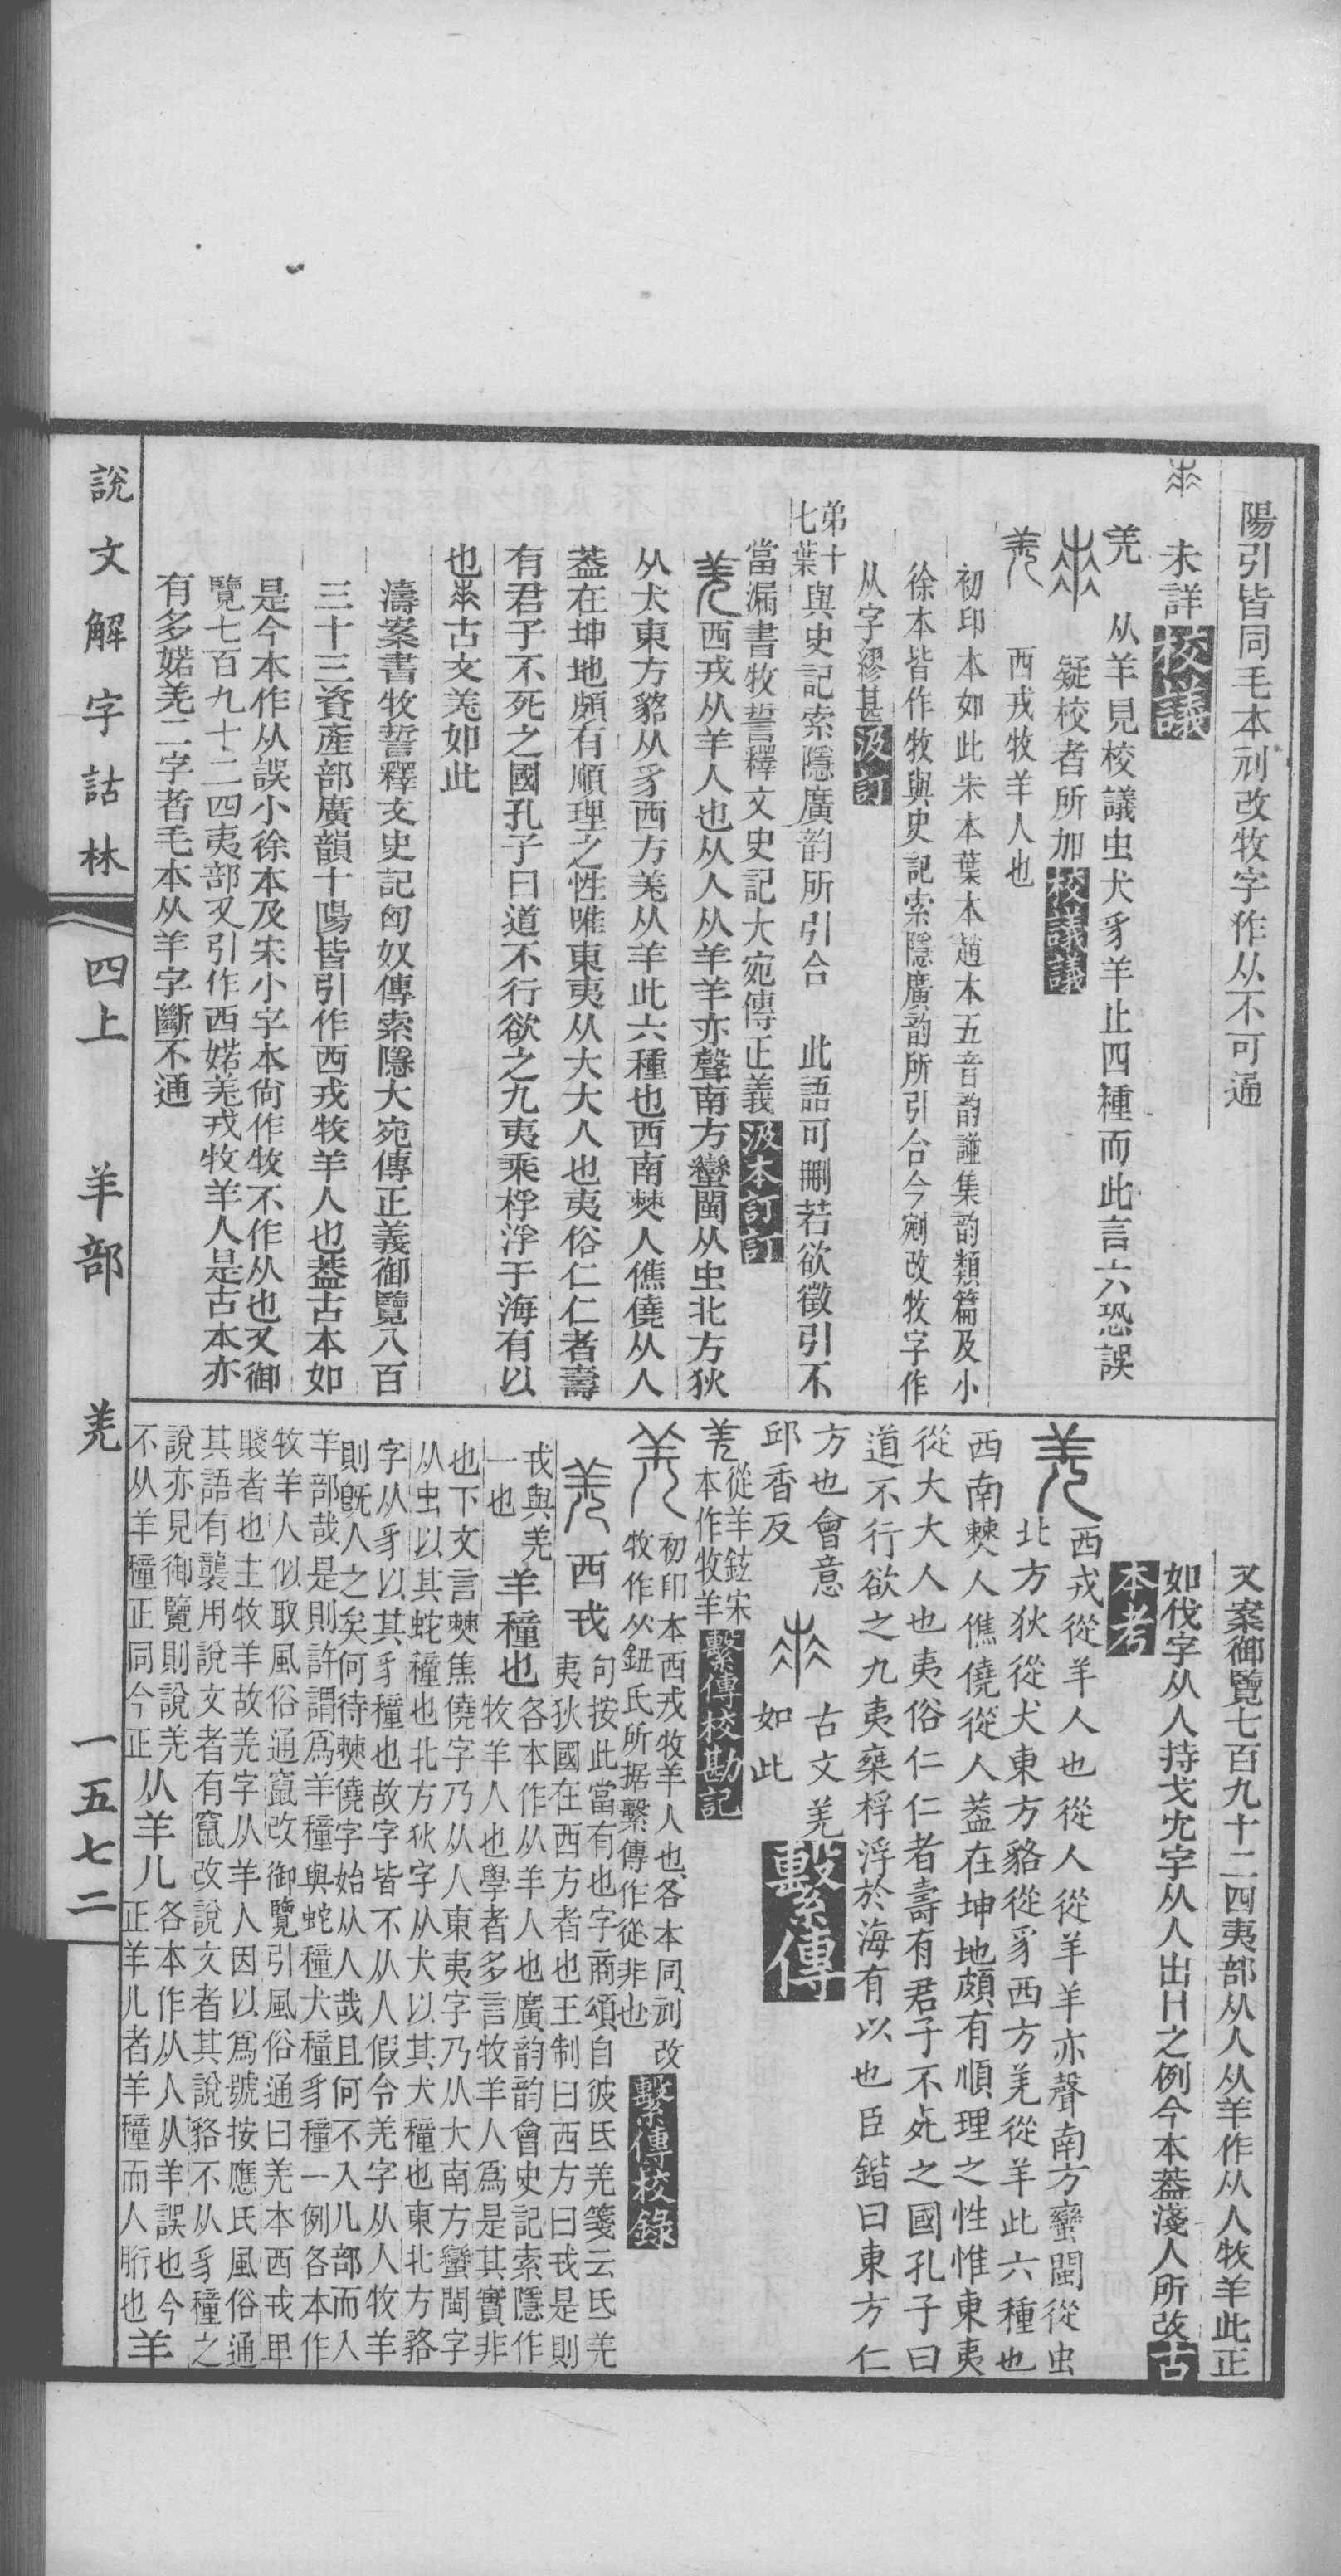 陽引皆同毛本刓改牧字作从不可通
未詳校議
羌
从羊見校議虫犬豸羊止四種而此言六恐誤
疑校者所加校議議
西戎牧羊人也
初印本如此宋本葉本趙本五音韵譜集韵類篇及小
徐本皆作牧與史記索隱廣韵所引合今剜改牧字作
从字繆甚汲訂
弟十
七葉
與史記索隱廣韵所引合 此語可刪若欲徵引不
當漏書牧誓釋文史記大宛傳正義汲本訂訂
羌西戎从羊人也从人从羊羊亦聲南方蠻閩从虫北方狄
从犬東方貉从豸西方羌从羊此六種也西南僰人僬僥从人
蓋在坤地頗有順理之性唯東夷从大大人也夷俗仁仁者壽
有君子不死之國孔子曰道不行欲之九夷乘桴浮于海有以
也古文羌如此
濤案書牧誓釋文史記匈奴傳索隱大宛傳正義御覽八百
三十三資產部廣韻十陽皆引作西戎牧羊人也蓋古本如
是今本作从誤小徐本及宋小字本尙作牧不作从也又御
覽七百九十二四夷部又引作西婼羌戎牧羊人是古本亦
有多婼羌二字者毛本从羊字斷不通
又案御覽七百九十二四夷部从人从羊作从人牧羊此正
如伐字从人持戈冘字从人出冂之例今本蓋淺人所改古
本考
羌
西戎從羊人也從人從羊羊亦聲南方蠻閩從虫
北方狄從犬東方貉從豸西方羌從羊此六種也
西南僰人僬僥從人蓋在坤地頗有順理之性惟東夷
從大大人也夷俗仁仁者壽有君子不死之國孔子曰
道不行欲之九夷乘桴浮於海有以也臣鍇曰東方仁
方也會意
邱香反
古文羌
如此
繫傳
羌
從羊鉉宋
本作牧羊
繫傳校勘記
初印本西戎牧羊人也各本同刓改
牧作从鈕氏所据繫傳作從非也
繫傳校錄
羌
西戎
句按此當有也字商頌自彼氐羌箋云氐羌
夷狄國在西方者也王制曰西方曰戎是則
戎與羌
一也
羊種也
各本作从羊人也廣韵韵會史記索隱作
牧羊人也學者多言牧羊人爲是其實非
也下文言僰焦僥字乃从人東夷字乃从大南方蠻閩字
从虫以其蛇穜也北方狄字从犬以其犬穜也東北方貉
字从豸以其豸穜也故字皆不从人假令羌字从人牧羊
則旣人之矣何待僰僥字始从人哉且何不入儿部而入
羊部哉是則許謂爲羊穜與蛇穜犬穜豸穜一例各本作
牧羊人似取風俗通竄改御覽引風俗通曰羌本西戎卑
賤者也主牧羊故羌字从羊人因以爲號按應氏風俗通
其語有襲用說文者有竄改說文者其說貉不从豸穜之
說亦見御覽則說羌
不从羊穜正同今正
从羊儿
各本作从人从羊誤也今
正羊儿者羊穜而人胻也
羊
說文解字詁林
四上
羊部
羌
一五七二